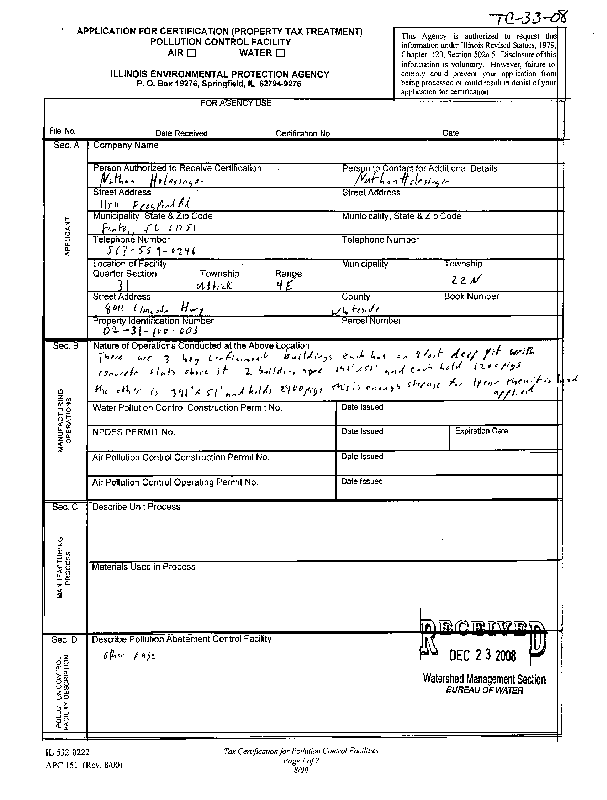 TC-33-08
APPLICATION FOR CERTIFICATION (PROPERTY TAX TREATMENT)
POLLUTION CONTROL FACILITY
AIR ☐ WATER ☐
ILLINOIS ENVIRONMENTAL PROTECTION AGENCY
P. O. Box 19276, Springfield, IL 62794-9276
This Agency is authorized to request this
information under Illinois Revised Statues, 1979,
Chapter 120, Section 502a-5. Disclosure of this
information is voluntary. However, failure to
comply could prevent your application from
being processed or could result in denial of your
application for certification
FOR AGENCY USE
File No. Date Received Certification No Date
Sec. A Company Name
Person Authorized to Receive Certification Person to Contact for Additional Details
Nathan Holesinger Nathan Holesinger
Street Address Street Address
Rd
Municipality, State & Zip Code Municipality, State & Zip Code
Telephone Number Telephone Number
563-559-0246
Location of Facility Municipality Township
Quarter Section Township Range 22N
31 Ustick 4E
Street Address County Book Number
Lincoln Hwy Whiteside
Property Identification Number Parcel Number
02-31-100-003
APPLICANT
Sec. B Nature of Operations Conducted at the Above Location
There are 3 hog confinement buildings each has an 8 foot deep pit with
concrete slats above it 2 buildings and each hold 1200 pigs
the other is x 51' and holds 2400 pigs this is enough storage for 1 year then it is land
applied
MANUFACTURING
OPERATIONS
Water Pollution Control Construction Permit No. Date Issued
NPDES PERMIT No. Date Issued Expiration Date
Air Pollution Control Construction Permit No. Date Issued
Air Pollution Control Operating Permit No. Date Issued
Sec. C Describe Unit Process
MANUFACTURING
PROCESS
Materials Used in Process
Sec. D Describe Pollution Abatement Control Facility
other page
POLLUTION CONTROL
FACILITY DESCRIPTION
RECEIVED
DEC 23 2008
Watershed Management Section
BUREAU OF WATER
IL 532-0222 Tax Certification for Pollution Control Facilities
APC 151 (Rev. 8/00) Page 1 of 2
8/00